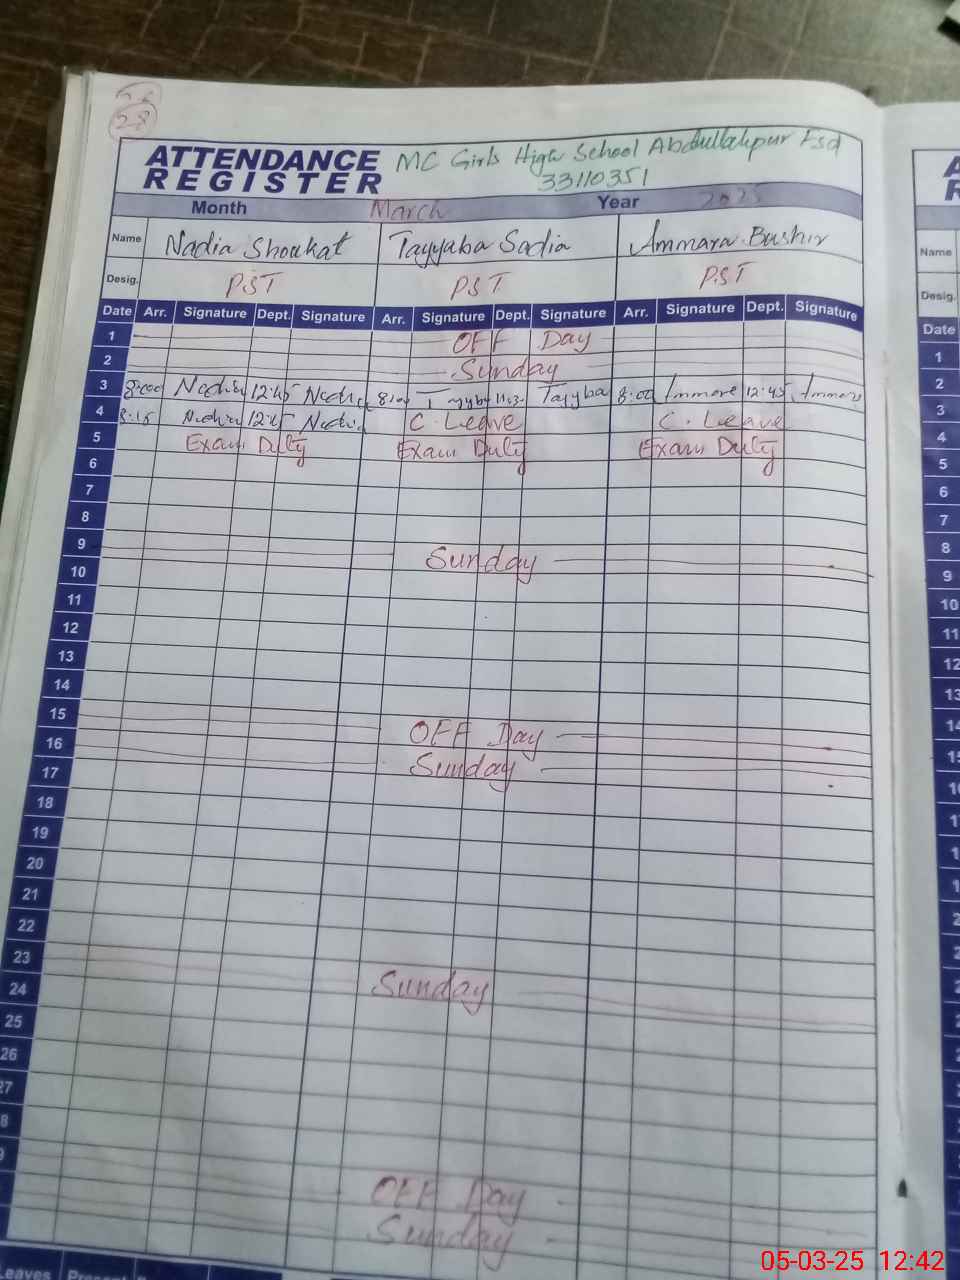 28
ATTENDANCE REGISTER MC Girls High School Abdullahpur Fsd
33110351
Month March Year 2025
Name Nadia Shoukat Tayyaba Sadia Ammara Bushir
Desig. PST PST PST
Date Arr. Signature Dept. Signature Arr. Signature Dept. Signature Arr. Signature Dept. Signature
1 OFF Day
2 Sunday
3 8:00 Nadia 12:45 Nadia Tayyba Tayyba 8:00 Ammara 12:45 Ammara
4 8:15 Nadia 12:45 Nadia C. Leave C. Leave
5 Exam Duty Exam Duty Exam Duty
6
7
8
9 Sunday
10
11
12
13
14
15 OFF Day
16 Sunday
17
18
19
20
21
22
23 Sunday
24
25
26
27
8
9
OFF Day
Sunday
Leaves Present
Name
Desig.
Date
1
2
3
4
5
6
7
8
9
10
11
12
13
14
15
05-03-25 12:42